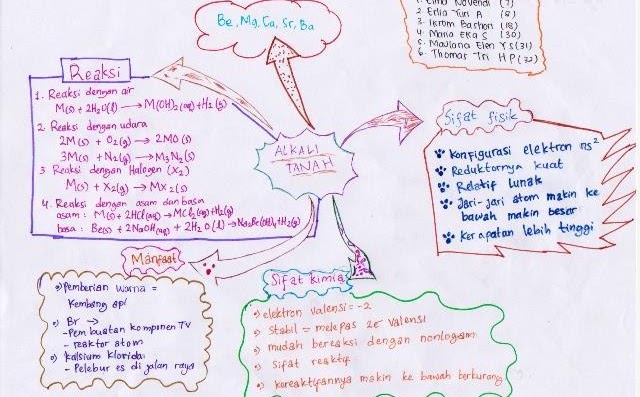 Be, Mg, Ca, Sr, Ba
2. Erlia Yuni A (8)
3. Ikrom Bashori (18)
4. Maria Eka S (30)
5. Mauliana Elen Y S (31)
6. Thomas Tri H P (32)
Reaksi
1. Reaksi dengan air
M(s) + 2H₂O(l) → M(OH)₂(aq) + H₂(g)
2. Reaksi dengan udara
2M(s) + O₂(g) → 2MO(s)
3M(s) + N₂(g) → M₃N₂(s)
3 Reaksi dengan Halogen (X₂)
M(s) + X₂(g) → MX₂(s)
4. Reaksi dengan asam dan basa
asam : M(s) + 2HCl(aq) → MCl₂(aq) + H₂(g)
basa : Be(s) + 2NaOH(aq) + 2H₂O(l) → Na₂Be(OH)₄ + H₂(g)
ALKALI
TANAH
Sifat fisik
Konfigurasi elektron ns²
Reduktornya kuat
Relatif lunak
Jari-jari atom makin ke
bawah makin besar
Kerapatan lebih tinggi
Manfaat
Pemberian warna =
Kembang api
Br →
- Pembuatan komponen TV
- reaktor atom
Kalsium Klorida:
- Pelebur es di jalan raya
Sifat kimia
elektron valensi = -2
Stabil = melepas 2e⁻ valensi
mudah bereaksi dengan nonlogam
Sifat reaktif
Kereaktifannya makin ke bawah berkurang